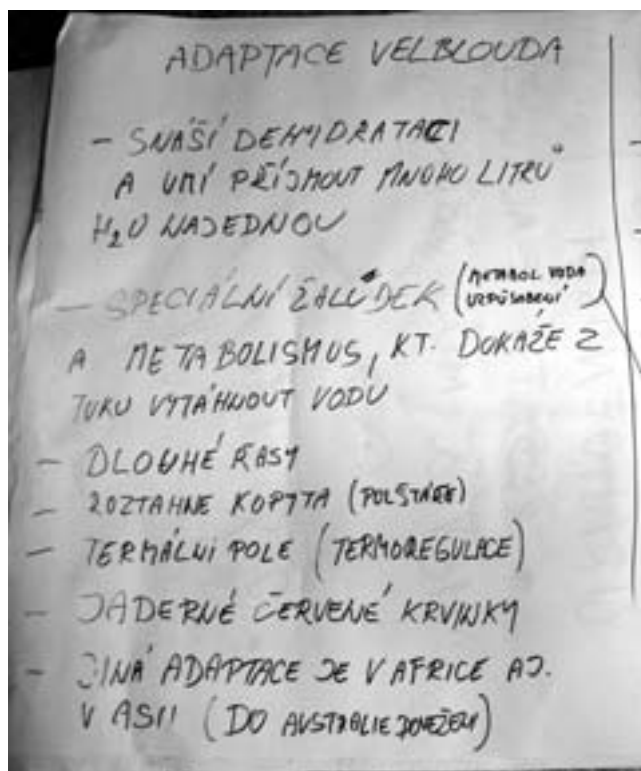 ADAPTACE VELBLOUDA
- SNÁŠÍ DEHYDRATACI
A UMÍ PŘÍJMOUT MNOHO LITRŮ
H₂O NAJEDNOU
- SPECIÁLNÍ ŽALŮDEK (METABOL VODA
UZPŮSOBENÍ
A METABOLISMUS, KT. DOKAŽE Z
TUKU VYTÁHNOUT VODU
- DLOUHÉ ŘASY
- ROZTAHNE KOPYTA (POLŠTÁŘE)
- TERMÁLNI POLE (TERMOREGULACE)
- JADERNÉ ČERVENÉ KRVINKY
- JINÁ ADAPTACE JE V AFRICE AJ.
V ASII (DO AUSTRÁLIE DOVEŽEN)